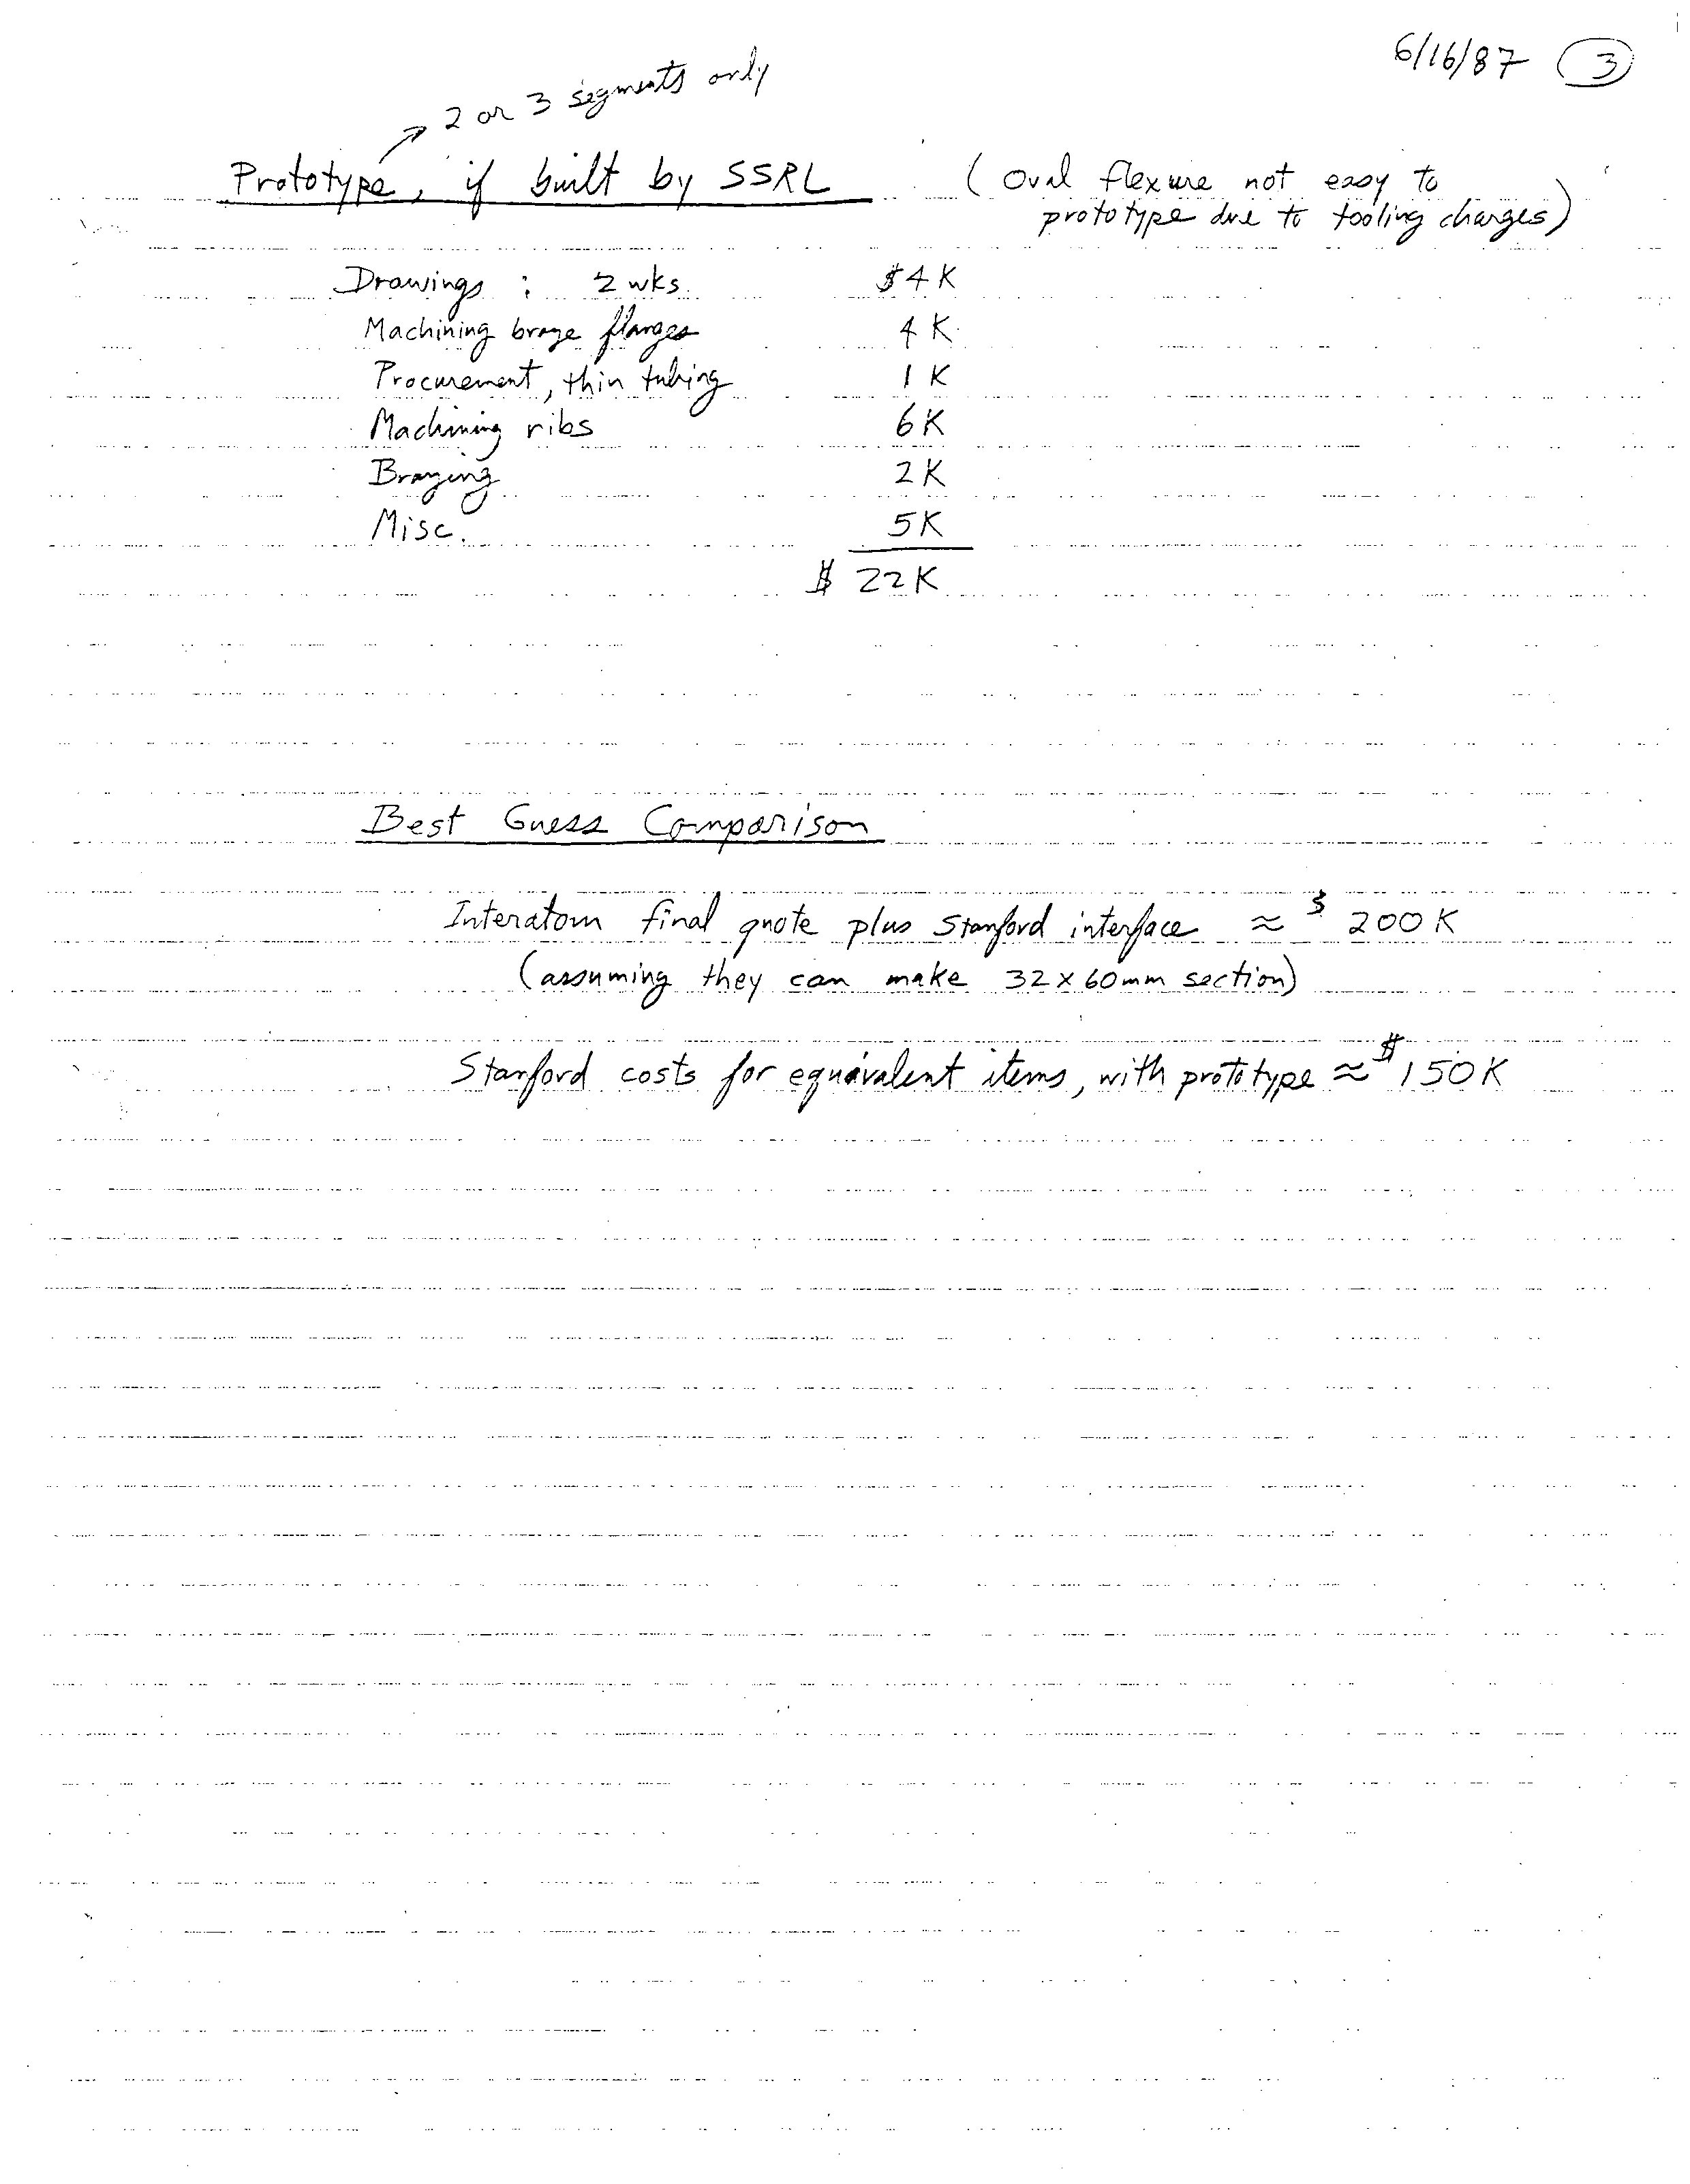 6/16/87 3
2 or 3 segments only
Prototype, if built by SSRL (Oval flexure not easy to
prototype due to tooling charges)
Drawings : 2 wks. $4K
Machining braze flanges 4K
Procurement, thin tubing 1K
Machining ribs 6K
Brazing 2K
Misc. 5K
$ 22K
Best Guess Comparison
Interatom final quote plus Stanford interface ≈ $ 200K
(assuming they can make 32 x 60mm section)
Stanford costs for equivalent items, with prototype ≈ $150K